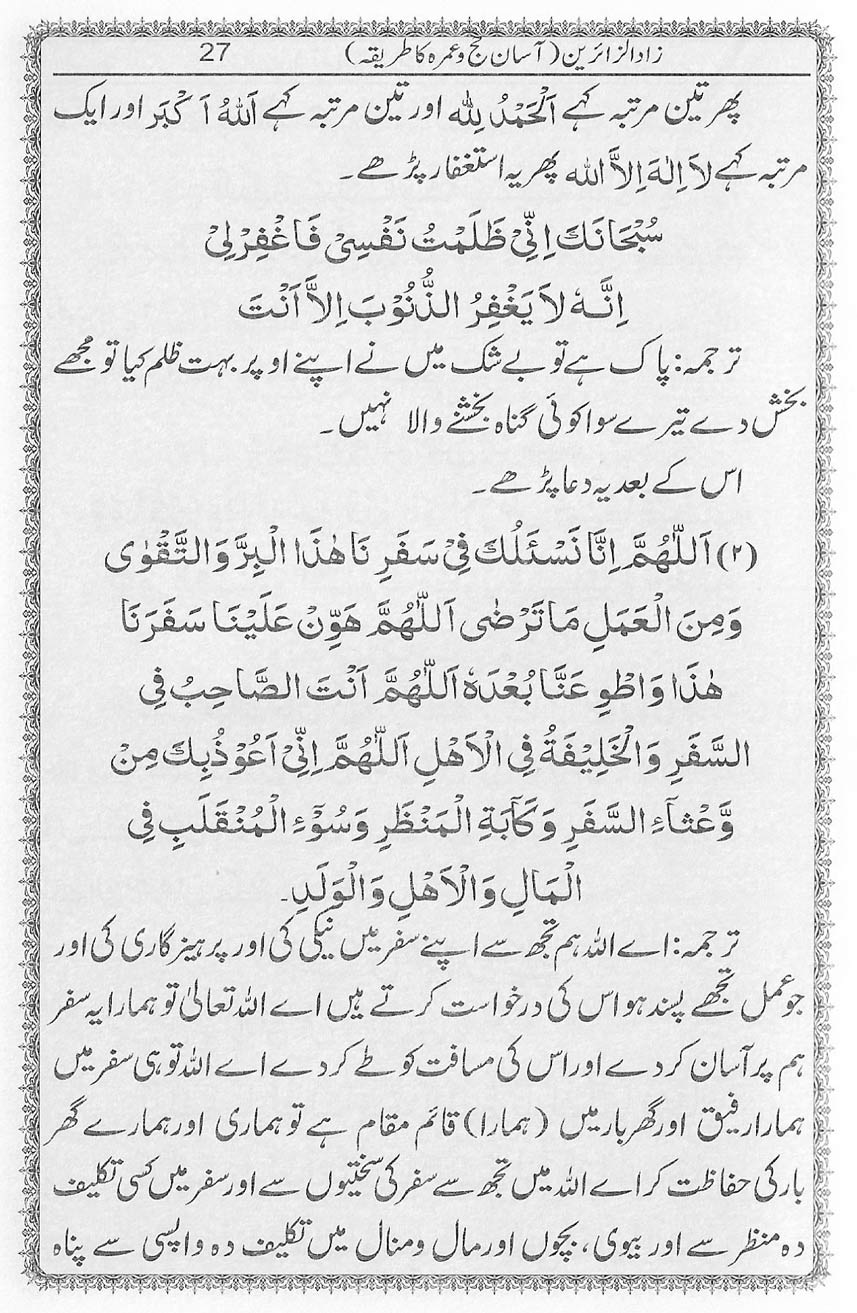 زاد الزائرین (آسان حج و عمرہ کا طریقہ) 27
پھر تین مرتبہ کہے اَلْحَمْدُ لِلّٰه اور تین مرتبہ کہے اَللهُ اَكْبَر اور ایک
مرتبہ کہے لَا اِلٰهَ اِلَّا الله پھر یہ استغفار پڑھے۔
سُبْحَانَكَ اِنِّیْ ظَلَمْتُ نَفْسِیْ فَاغْفِرْلِیْ
اِنَّهٗ لَا یَغْفِرُ الذُّنُوْبَ اِلَّا اَنْتَ
ترجمہ: پاک ہے تو بے شک میں نے اپنے اوپر بہت ظلم کیا تو مجھے
بخش دے تیرے سوا کوئی گناہ بخشنے والا نہیں۔
اس کے بعد یہ دعا پڑھے۔
(۲) اَللّٰهُمَّ اِنَّا نَسْئَلُكَ فِیْ سَفَرِنَا هٰذَا الْبِرَّ وَالتَّقْوٰی
وَمِنَ الْعَمَلِ مَا تَرْضٰی اَللّٰهُمَّ هَوِّنْ عَلَیْنَا سَفَرَنَا
هٰذَا وَاطْوِ عَنَّا بُعْدَهٗ اَللّٰهُمَّ اَنْتَ الصَّاحِبُ فِی
السَّفَرِ وَالْخَلِیْفَةُ فِی الْاَهْلِ اَللّٰهُمَّ اِنِّیْ اَعُوْذُبِكَ مِنْ
وَّعْثَاءِ السَّفَرِ وَكَآبَةِ الْمَنْظَرِ وَسُوْٓءِ الْمُنْقَلَبِ فِی
الْمَالِ وَالْاَهْلِ وَالْوَلَدِ۔
ترجمہ: اے اللہ ہم تجھ سے اپنے سفر میں نیکی کی اور پرہیزگاری کی اور
جو عمل تجھے پسند ہو اس کی درخواست کرتے ہیں اے اللہ تعالیٰ تو ہمارا یہ سفر
ہم پر آسان کر دے اور اس کی مسافت کو طے کر دے اے اللہ تو ہی سفر میں
ہمارا رفیق اور گھر بار میں (ہمارا) قائم مقام ہے تو ہماری اور ہمارے گھر
بار کی حفاظت کر اے اللہ میں تجھ سے سفر کی سختیوں سے اور سفر میں کسی تکلیف
دہ منظر سے اور بیوی، بچوں اور مال ومنال میں تکلیف دہ واپسی سے پناہ